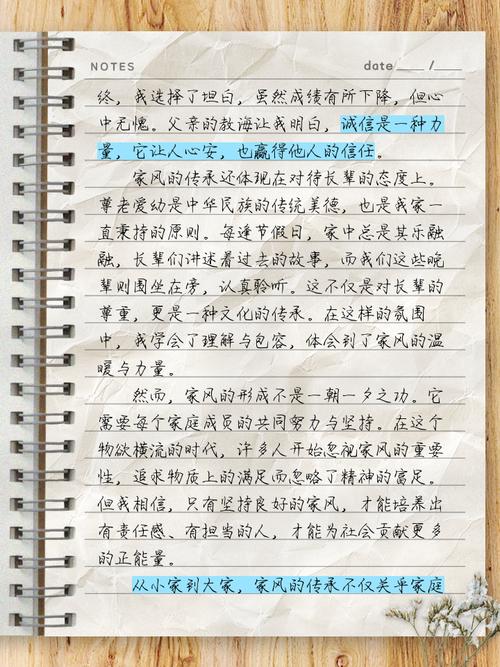 NOTES
date ____ / ____
终，我选择了坦白，虽然成绩有所下降，但心
中无愧。父亲的教诲让我明白，诚信是一种力
量，它让人心安，也赢得他人的信任。
家风的传承还体现在对待长辈的态度上。
尊老爱幼是中华民族的传统美德，也是我家一
直秉持的原则。每逢节假日，家中总是其乐融
融，长辈们讲述着过去的故事，而我们这些晚
辈则围坐在旁，认真聆听。这不仅是对长辈的
尊重，更是一种文化的传承。在这样的氛围
中，我学会了理解与包容，体会到了家风的温
暖与力量。
然而，家风的形成不是一朝一夕之功。它
需要每个家庭成员的共同努力与坚持。在这个
物欲横流的时代，许多人开始忽视家风的重要
性，追求物质上的满足而忽略了精神的富足。
但我相信，只有坚持良好的家风，才能培养出
有责任感、有担当的人，才能为社会贡献更多
的正能量。
从小家到大家，家风的传承不仅关乎家庭